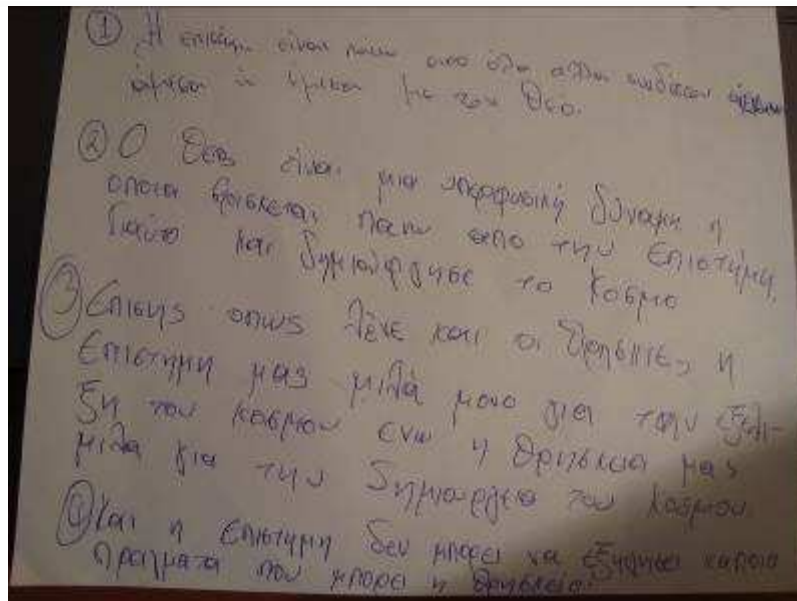 ① Η επιστήμη είναι πάνω απο όλα αλλα
άμεσα ή έμμεσα με τον Θεό.
② Ο Θεός είναι μια υπερφυσική δύναμη η
οποια βρισκεται πανω απο την Επιστήμη
Γιαυτο και δημιούργησε το Κοσμο
③ Επισης οπως λενε και οι θρησκιες, η
Επιστημη μας μιλά μονο για την εξελι-
ξη του κοσμου ενω η θρησκεια μας
μιλα για την δημιουργεια του κοσμου.
④ Και η Επιστημη δεν μπορει να εξηγησει καποια
πραγματα που μπορει η θρησκεια.